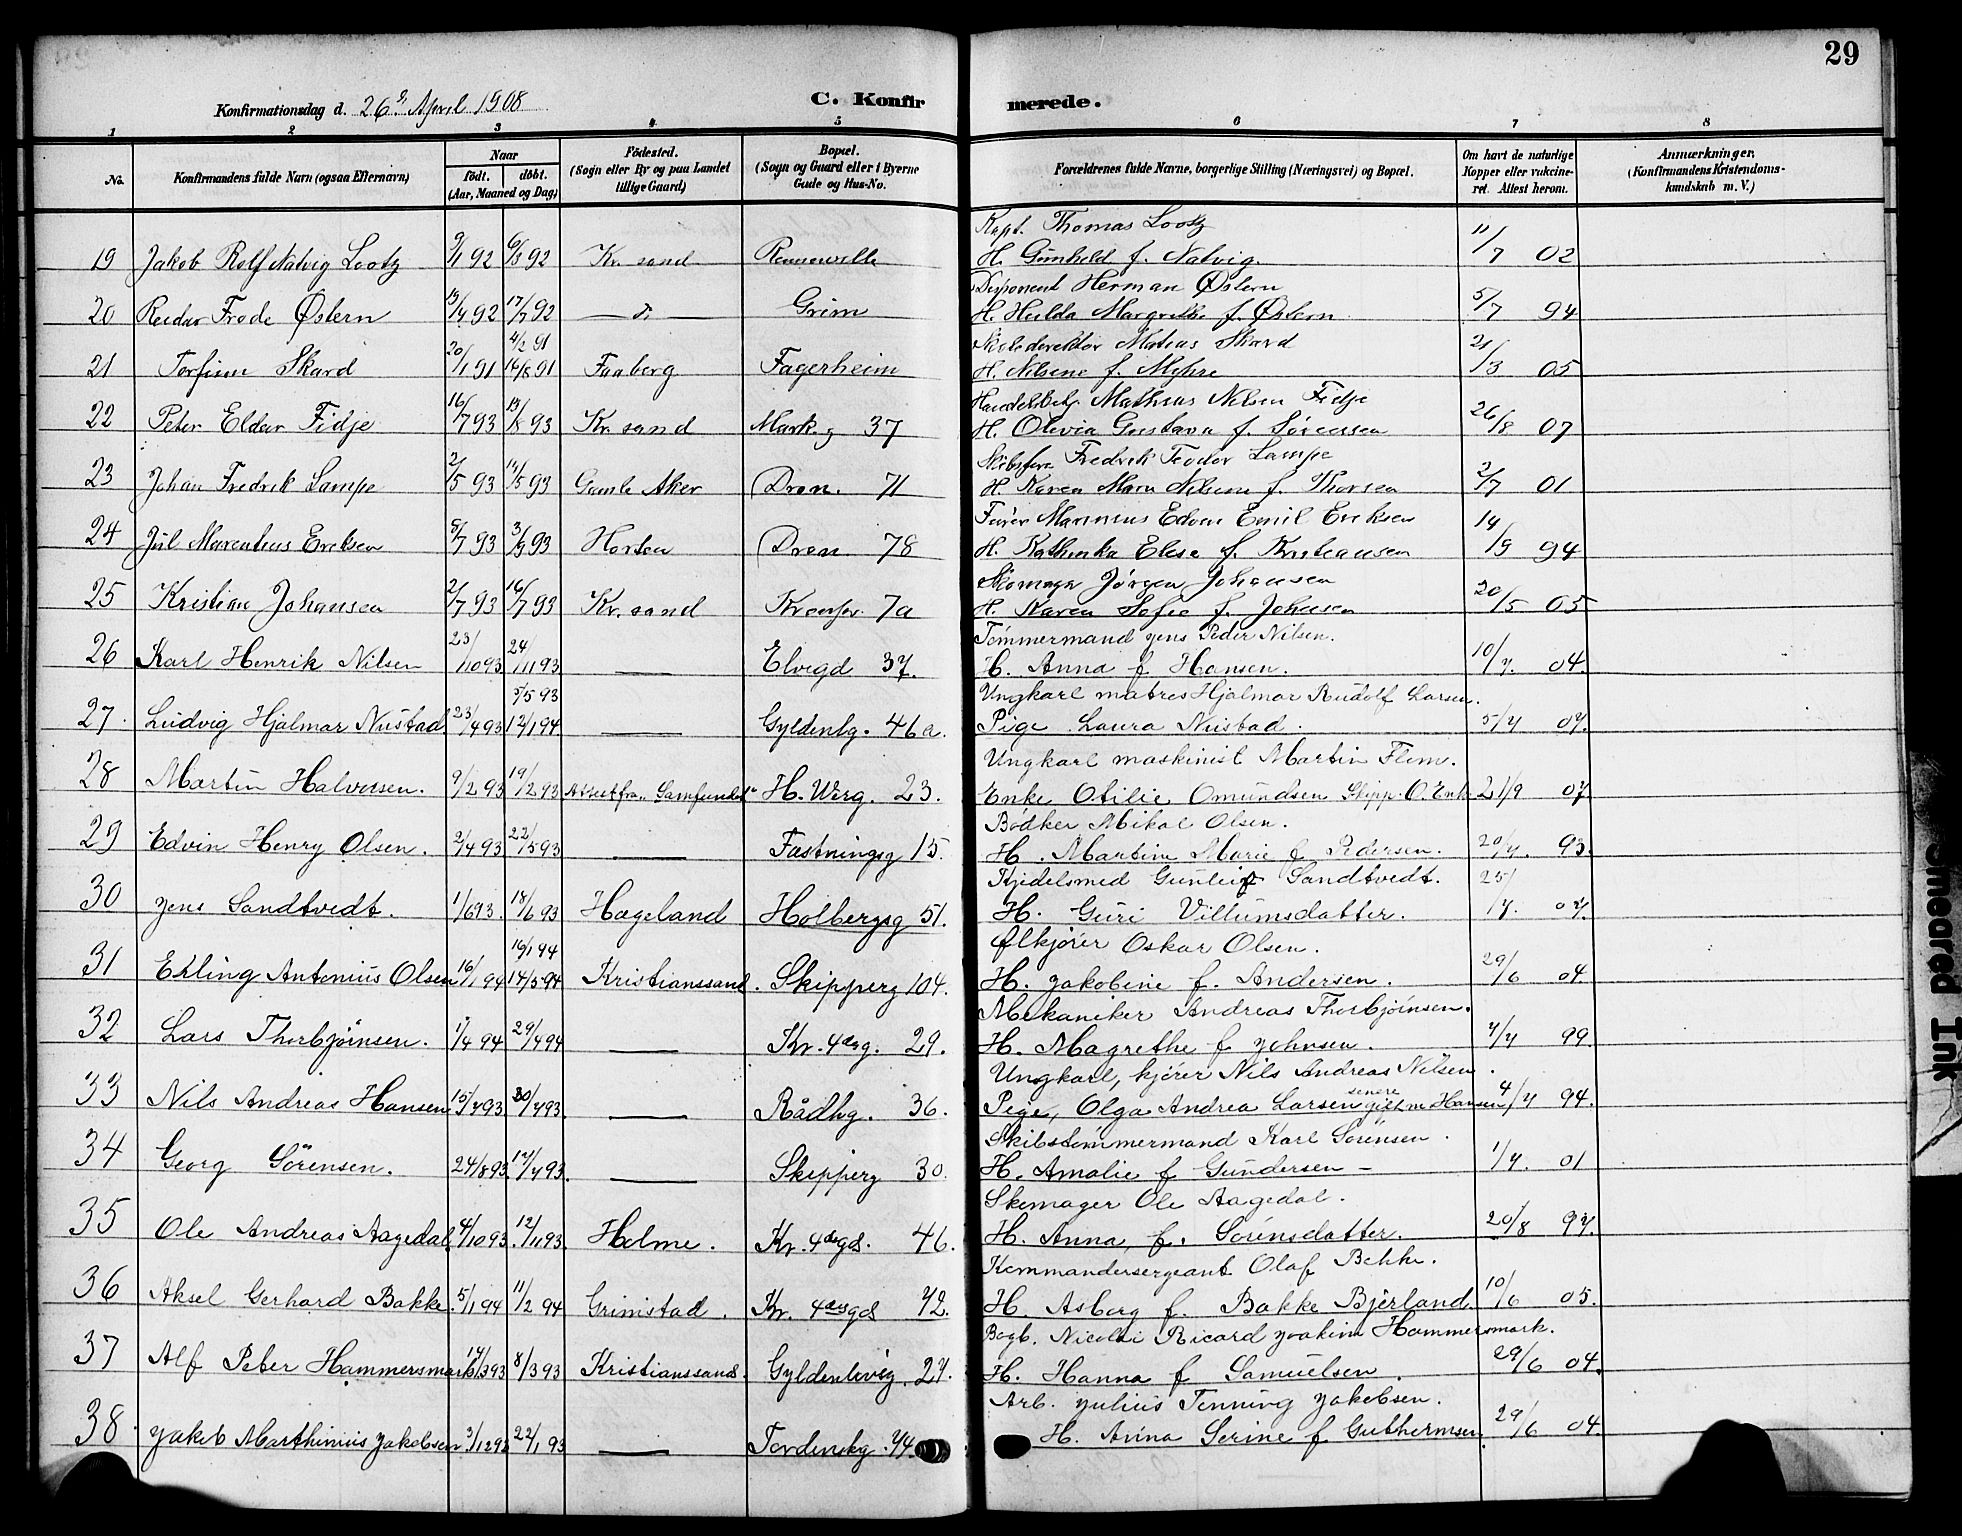 29
Konfirmationsdag d. 26de April 1908
C. Konfir merede.
1 2 3 4 5 6 7 8
No. Konfirmandens fulde Navn (ogsaa Efternavn) Naar født. døbt. (Aar, Maaned og Dag) Fødested. (Sogn eller By og paa Landet tillige Gaard) Bopæl. (Sogn og Gaard eller i Byerne Gade og Hus-No. Forældrenes fulde Navne, borgerlige Stilling (Næringsvei) og Bopæl. Om havt de naturlige Kopper eller vakcineret. Attest herom. Anmærkninger. (Konfirmandens Kristendomskundskab m. V.)
Kapt. Thomas Lootz
19 Jakob Rolf Natvig Lootz 9/1 92 6/3 92 Kr. sand H. Gunhild f. Natvig. 11/7 02
Disponent Herman Østern
20 Reidar Frode Østern 13/4 92 17/7 92 — d — Grim H. Hulda Margrethe f. Østern 5/7 94
Skoledirektør Matias Skard
21 Torfinn Skard 20/1 91 4/2 91 14/8 91 Faaberg Fagerheim H. Nilsine f. Myhre 21/3 05
Handelsbetj Mathias Nelsen Fidje
22 Peter Eldar Fidje 16/7 93 13/8 93 Kr. sand Mark.g 37 H. Olivia Gustava f. Sørensen 26/8 07
Skibsfører Fredrik Teodor Lampe
23 Johan Fredrik Lampe 2/5 93 14/5 93 Gamle Aker Dron. 71 H. Karen Mara Nilsine f. Thorsen 2/7 01
Furer Marinius Edvin Emil Eriksen
24 Jul Marentius Eriksen 5/7 93 3/9 93 Horten Dron 78 H. Kathinka Elise f. Kristiansen 14/9 94
Skomager Jørgen Johansen
25 Kristian Johansen 2/7 93 16/7 93 Kr. sand Kronpr. 7a H. Karen Sofie f. Johnsen 20/5 05
Tømmermand Jens Peder Nilsen.
26 Karl Henrik Nilsen 23/10 93 24/11 93 — Elvegd 37. H. Anna f. Hansen. 10/7. 04.
Ungkarl matros Hjalmar Rudolf Larsen.
27. Ludvig Hjalmar Nustad 23/4 93 5/5 93 12/1 94 — Gyldenlg. 46a. Pige Laura Nustad. 5/7 07.
Ungkarl maskinist Martin Flem.
28 Martin Halvorsen. 9/2 93 19/2 93 Attest fra "Samfundet" H. Werg. 23. Enke Otilie Omundsen Skipp. O. Enke 21/9 07
Bødker Mikal Olsen.
29 Edvin Henry Olsen. 2/4 93 22/5 93 — Fæstningsg 15. H. Martine Marie f. Pedersen. 20/7. 93.
Kjedelsmed Gunleif Sandtvedt.
30 Jens Sandtvedt. 1/6 93. 18/6 93 Hægeland Holbergsg 51. H. Guri Villumsdatter. 25/7. 07.
Ølkjører Oskar Olsen.
31 Erling Antonius Olsen 16/1 94 16/1 94 14/5 94 Kristianssand. Skipperg 104. H. Jakobine f. Andersen. 29/6 04.
Mekaniker Andreas Thorbjørnsen.
32 Lars Thorbjørnsen. 1/4 94 29/4 94 — Kr. 4des g. 29. H. Magrethe f Johnsen. 7/7 99
Ungkarl, kjører Nils Andreas Nilsen.
33 Nils Andreas Hansen 15/7 93 30/7 93. — Rådhg. 36. Pige, Olga Andrea Larsen senere gift m Hansen 4/7 94.
Skibstømmermand Karl Sørensen.
34 Georg Sörensen. 24/8 93. 17/9 93. — Skipperg 30. H. Amalie f Gundersen — 1/7. 01
Skomager Ole Aagedal.
35 Ole Andreas Aagedal. 4/10 93. 12/11 93. Holme. Kr. 4des gd. 46. H. Anna, f. Sörensdatter. 20/8 97.
Kommandersergeant Olaf Bakke.
36 Aksel Gerhard Bakke. 5/1 94 11/2 94 Grimstad. Kr. 4des gd 72. H. Asberg f. Bakke Bjerland. 10/6 05.
Bogb. Nicolai Ricard Joakim Hammersmark.
37 Alf Peter Hammersmark 8/3 93 Kristianssand. Gyldenløvig. 27. H. Hanna f Samuelsen. 29/6 04.
Arb. Julius Tenning Jakobsen.
38. Jakob Marthinius Jakobsen 3/12 92 22/1 93 — Tordenskg. 74. H. Anna Serine f Guthormsen. 29/6 04.
Smeared Ink